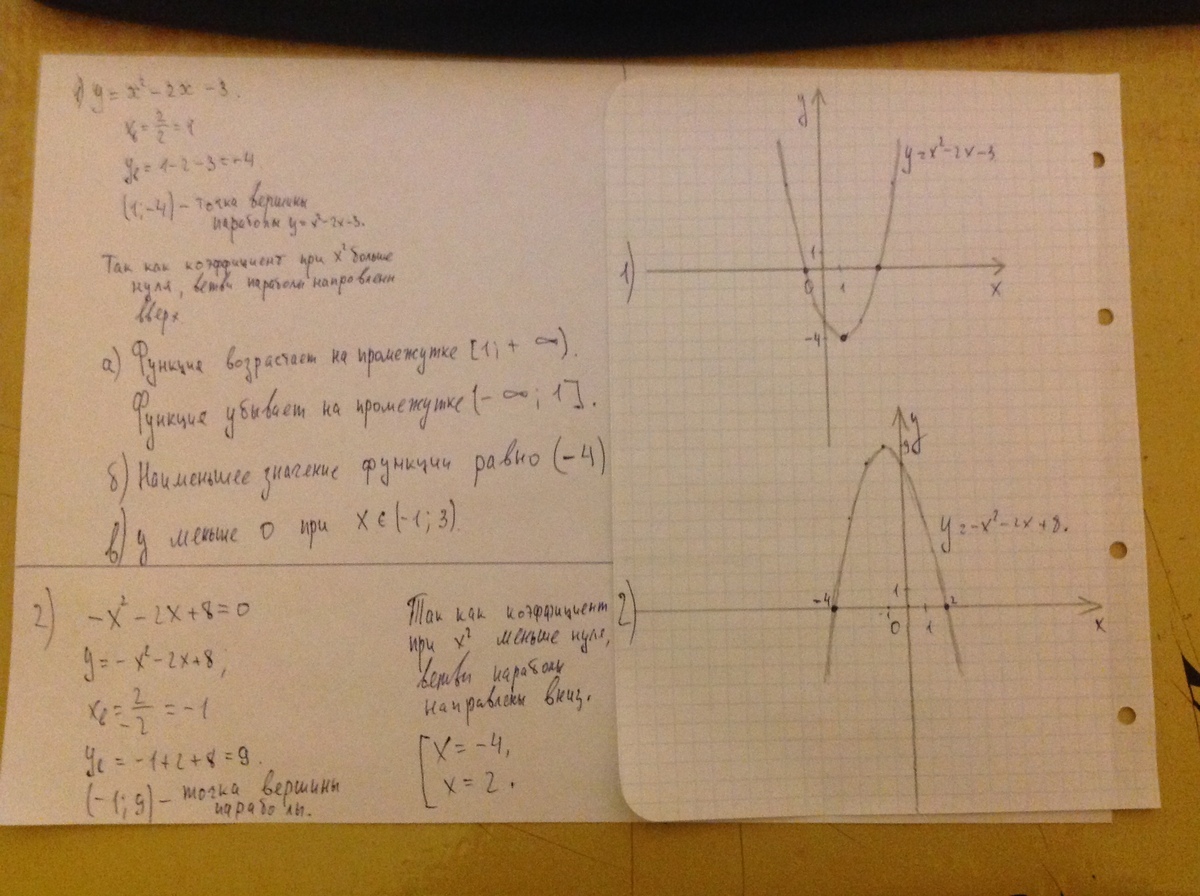 1) y = x² - 2x - 3.
xв = 2/2 = 1
yв = 1 - 2 - 3 = -4
(1; -4) - точка вершины
параболы y = x² - 2x - 3.
Так как коэффициент при x² больше
нуля, ветви параболы направлены
вверх
а) Функция возрастает на промежутке [1; + ∞).
Функция убывает на промежутке (- ∞; 1].
б) Наименьшее значение функции равно (-4)
в) y меньше 0 при x ∈ (-1; 3).
2) -x² - 2x + 8 = 0
y = -x² - 2x + 8;
xв = 2/-2 = -1
yв = -1 + 2 + 8 = 9.
(-1; 9) - точка вершины
параболы.
Так как коэффициент
при x² меньше нуля,
ветви параболы
направлены вниз.
[x = -4,
x = 2.
1)
y
y = x² - 2x - 3
1
0
1
x
-4
2)
y
9
y = -x² - 2x + 8.
-4
-1
1
0
1
2
x